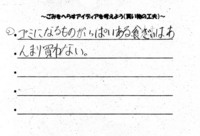 ～ごみをへらすアイディアを考えよう(買い物の工夫)～
② ・ゴミになるものがいっぱいある食ざいはあ
・んまり買わない。